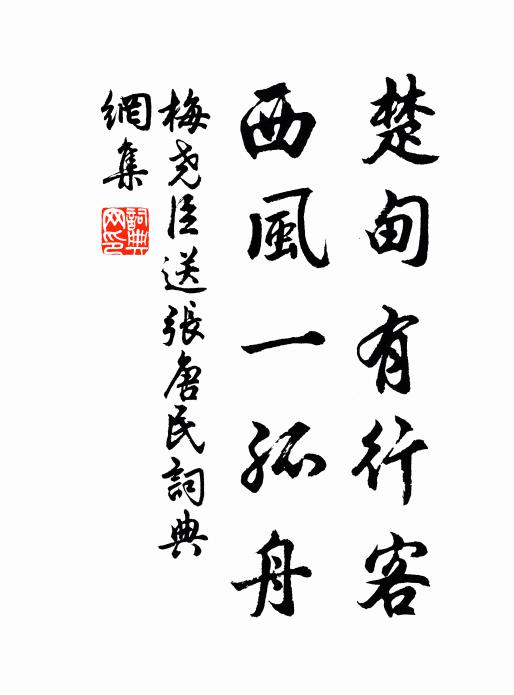 楚甸有行客
西風一孤舟
梅尧臣送張唐民詞典
網集
詞典
网印